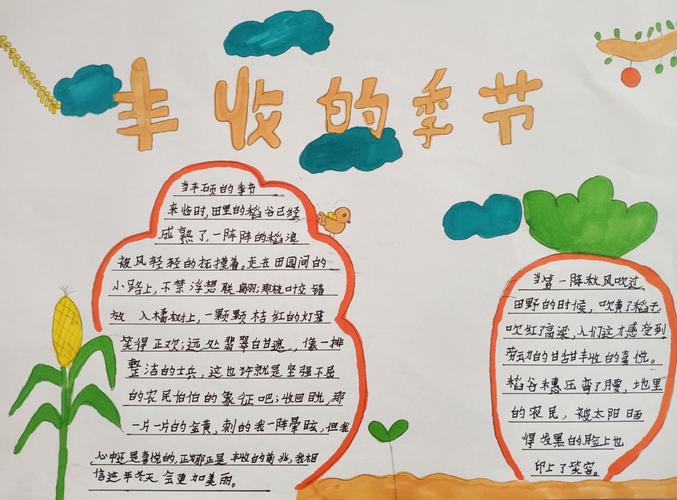 丰收的季节
当丰硕的季节
来临时,田里的稻谷已经
成熟了一阵阵的稻浪
被风轻轻的抚摸着。走在田园间的
小路上,不禁浮想联翩;那枝叶交错
放入橘树上,一颗颗桔红的灯笼
笑得正欢;远处翡翠甘遮,像一排
整洁的士兵,这也许就是坚强不屈
的农民伯伯的象征吧;收回目光,那
一片一片的金黄,刺的我一阵晕眩,但我
心中还是喜悦的,正如那正是丰收的前兆,我相
信这年冬天会更加美丽。
当第一阵秋风吹过
田野的时候,吹黄了稻子
吹红了高粱,人们这才感受到
劳动的甘甜丰收的喜悦。
稻谷穗压弯了腰,地里
的农民,被太阳晒
得发黑的脸上也
印上了笑容。